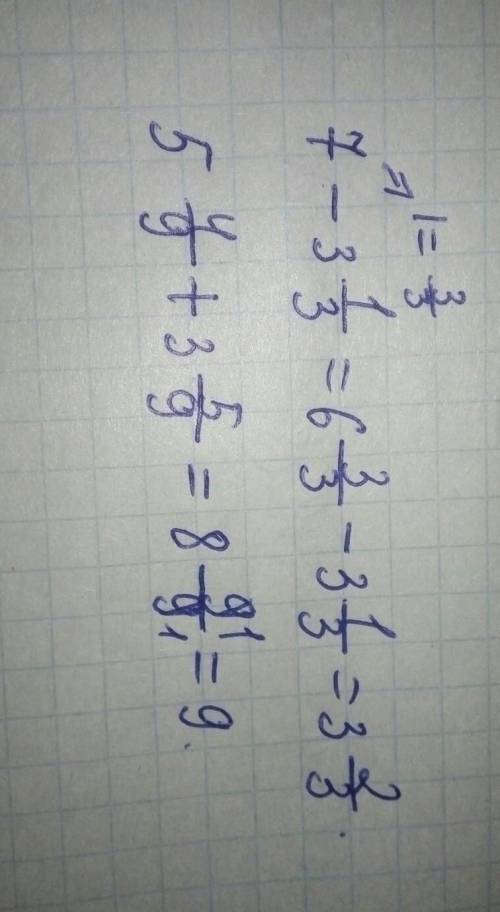 1 = 3/3
7 - 3 1/3 = 6 3/3 - 3 1/3 = 3 2/3.
5 4/9 + 3 5/9 = 8 9/9 1 1 = 9.